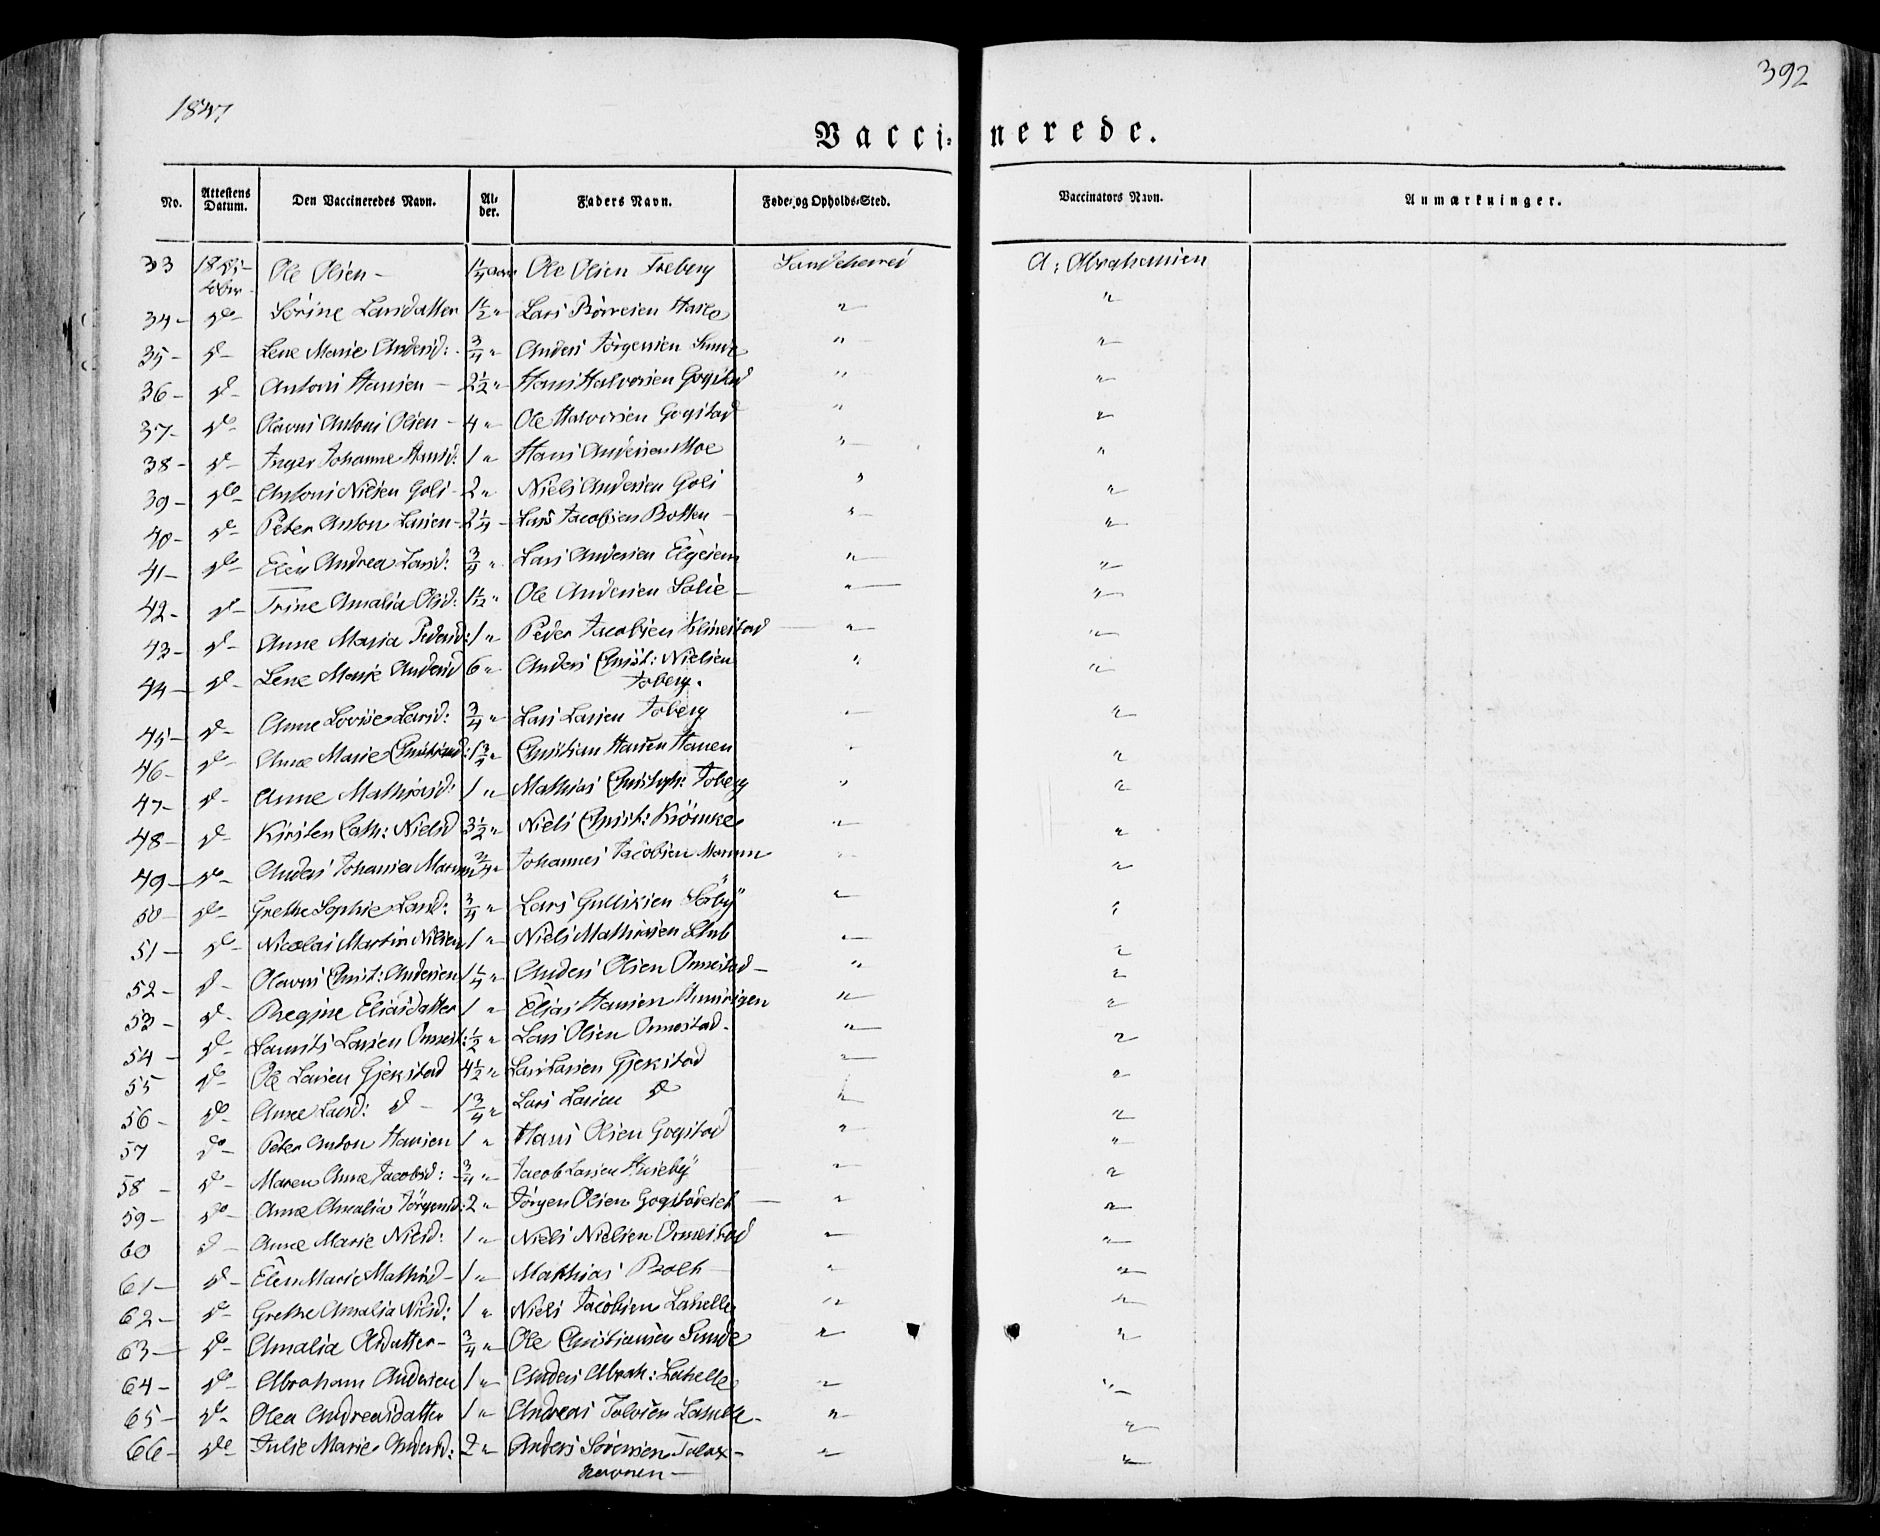 1847
392
Vaccinerede.
No. Attestens Datum. Den Vaccineredes Navn. Alder. Faders Navn. Føde- og Opholds-Sted. Vaccinators Navn. Anmærkninger.
33 Ole Olsen - Ole Olsen Freberg Sandeherred A: Abrahamsen
34 - do - Sørine Larsdatter 1½ " Lars Børresen Hasle " "
35 - do - Lene Marie Andersd: ¾ " Anders Jørgensen Sunde " "
36 - do - Antoni Hansen - 2½ " Hans Halvorsen Gogstad " "
37 - do - Olavus Antoni Olsen - 4 " Ole Halvorsen Gogstad " "
38 - do - Inger Johanne Hansd: 1 " Hans Andersen Moe " "
39 - do - Antoni Nilsen Goli - 2 " Niels Andersen Goli " "
40 - do - Peter Anton Larsen - 2¼ - Lars Jacobsen Botten - " "
41 - do - Elen Andrea Larsd: ¾ " Lars Andersen Elgesem " "
42 - do - Trine Amalia Olsd: 1½ " Ole Andersen Solie - " "
43 - do - Anne Maria Pedersd: 1 " Peder Jacobsen Klinestad " "
44 - do - Lene Marie Andersd 6 " Anders Christ: Nielsen " "
Toberg.
45 - do - Anne Lovise Larsd: ¾ " Lars Larsen Toberg " "
46 - do - Anne Marie Christiansd: 1¾ " Christian Hansen Hauen " "
47 - do - Anne Mathiasd: 1 " Mathias Christoph: Toberg " "
48 - do - Kirsten Cath: Nielsd 3½ " Niels Christ: Krømke " "
49 - do - Anders Johannes ¾ " Johannes Jacobsen " "
50 - do - Grethe Sophie Larsd: ¾ " Lars Gulliksen Søby " "
51 - do - Nicolai Martin Nilsen 1 " Niels Mathiasen Stub " "
52 - do - Olavus Christ: Andersen 1¼ " Anders Olsen Ormestad - " "
53 - do - Regine Eliasdatter 1 " Elias Hansen " "
54 - do - Laurits Larsen Ormest: ½ " Lars Olsen Ormestad - " "
55 do - Ole Larsen Gjekstad 4½ " Lars Larsen Gjekstad " "
56 - do - Anne Larsd: do - 1¾ " Lars Larsen do " "
57 do - Peter Anton Hansen 1 " Hans Olsen Gogstad " "
58 - do - Maren Anne Jacobsd: - ¾ " Jacob Larsen Huseby " "
59 - do - Anne Amalia Jørgensd: 2 " Jørgen Olsen Gogstadeiet - " "
60 do - Anne Marie Nilsd: 1 " Niels Nielsen Ormestad " "
61 - do - Elen Marie Mathisd - 1 " Mathias - " "
62 - do - Grethe Amalia Nilsd: 1 " Niels Jacobsen Lahelle " "
63 - do - Amalia Olsdatter - ¾ " Ole Christiansen Sunde " "
64 - do - Abraham Andersen 1 " Anders Abrah: Lahelle " "
65 - do - Olea Andreasdatter 1 " Andreas Lahelle - " "
66 - do - Julie Marie Andersd: 2 " Anders Sørensen - " "
havnen -